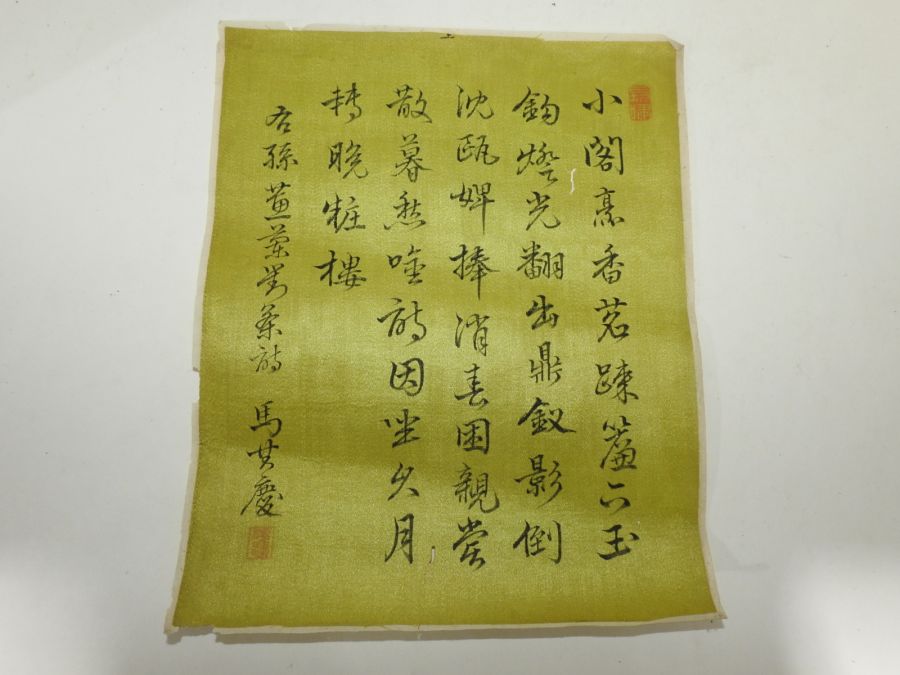 上
小閣烹香茗踈簾下玉
鈎燈光翻出鼎釵影倒
沈甌婢捧消春困親嘗
散暮愁吟詩因坐久月
轉晚粧樓
右孫蕙蘭茶詩 馬慶